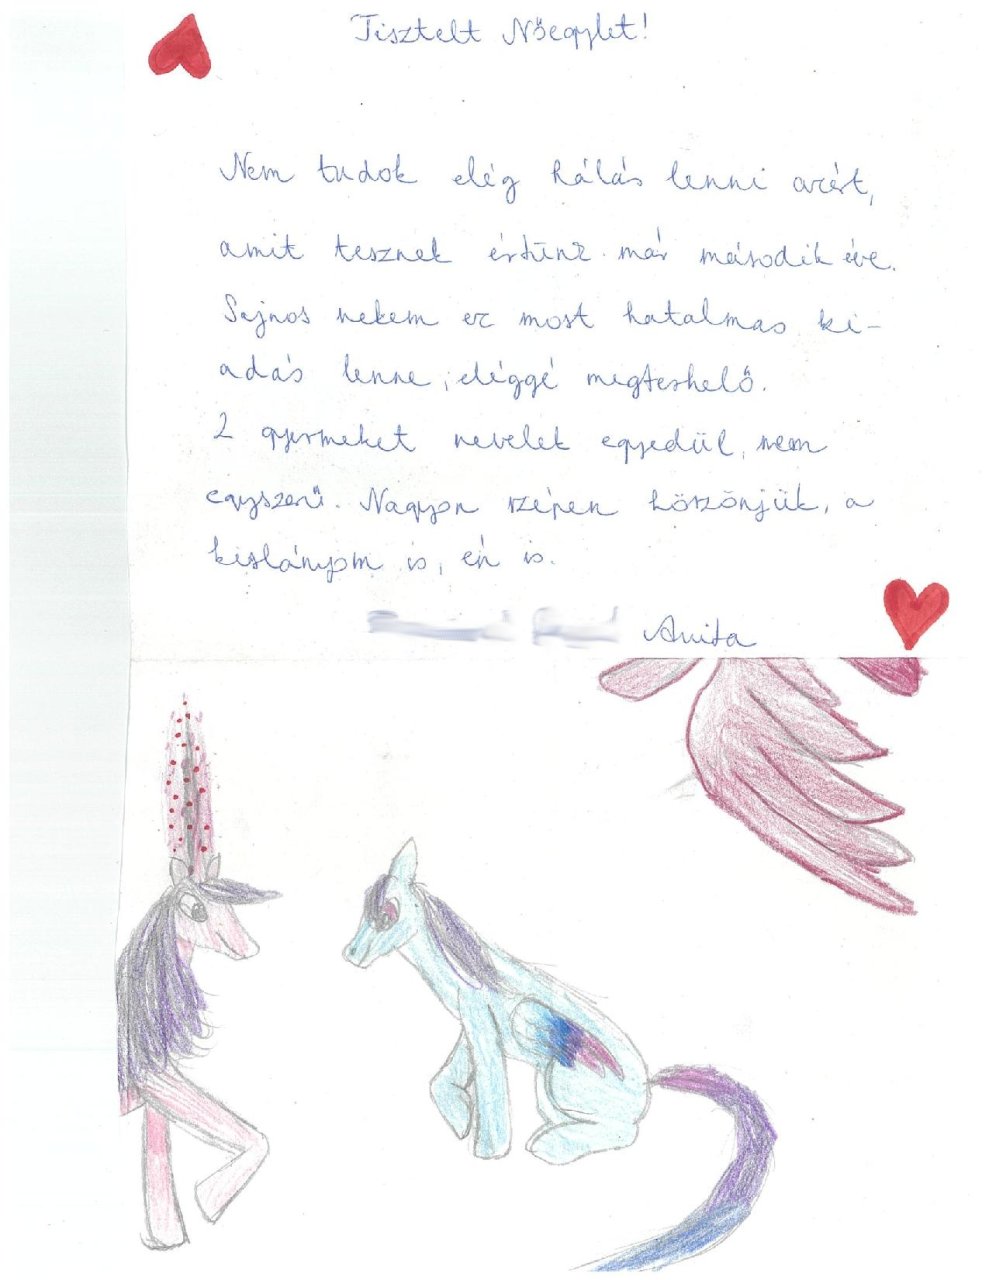 Tisztelt Nőegylet!
Nem tudok elég hálás lenni azért,
amit tesznek értünk már második éve.
Sajnos nekem ez most hatalmas ki-
adás lenne, eléggé megterhelő.
2 gyermeket nevelek egyedül, nem
egyszerű. Nagyon szépen köszönjük, a
kislányom is, én is.
Anita